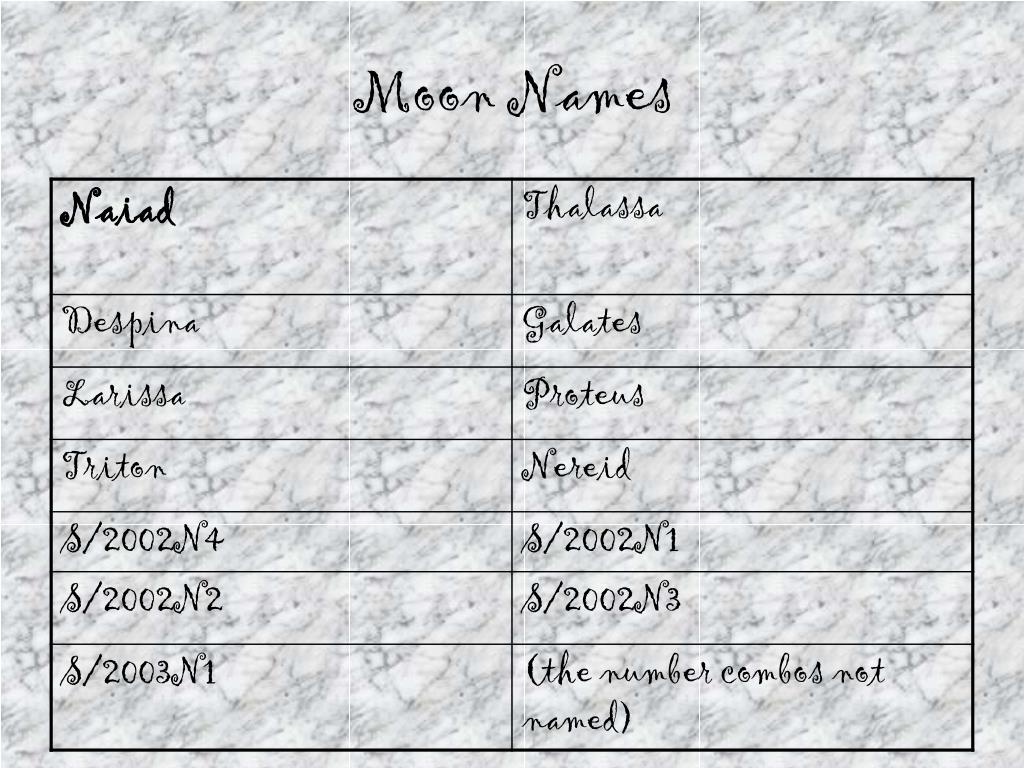 Moon Names
Naiad
Thalassa
Despina
Galates
Larissa
Proteus
Triton
Nereid
S/2002N4
S/2002N1
S/2002N2
S/2002N3
S/2003N1
(the number combos not
named)